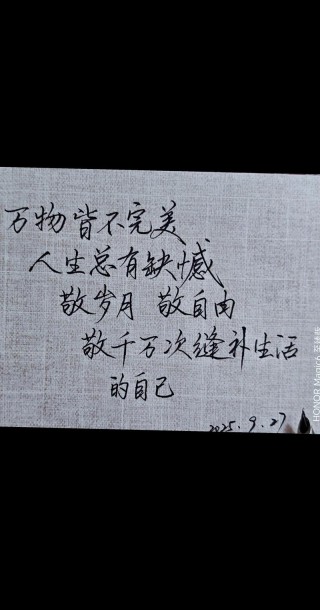 万物皆不完美
人生总有缺憾
敬岁月 敬自由
敬千万次缝补生活
的自己
2025.9.27